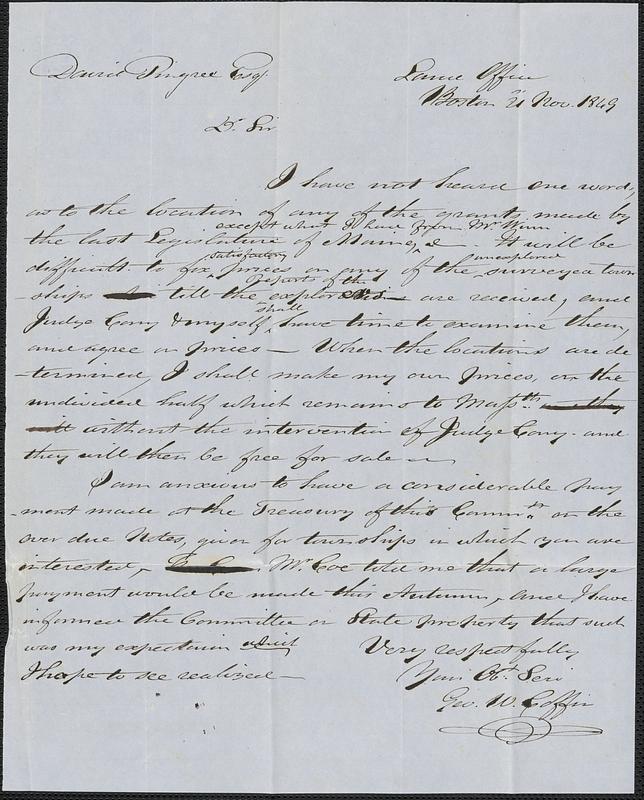 David Pingree Esq.
Land Office
Boston 21 Nov. 1849
Dr. Sir
I have not heard one word,
as to the location of any of the grants made by
except what I have from Mr Winn
the last Legislature of Maine, &. It will be
satisfactory unexplored
difficult to fix prices on any of the surveyed town
reports of the
-ships till the explorers are received, and
shall
Judge Cony & myself, have time to examine them,
and agree on prices — When the locations are de
-termined, I shall make my own prices, on the
undivided half which remains to Masstts. the
without the intervention of Judge Cony. and
they will then be free for sale —
I am anxious to have a considerable pay
-ment made at the Treasury of this Commth. on the
over due Notes, given for townships in which you are
interested, Mr Coe told me that a large
payment would be made this Autumn, and I have
informed the Committee on State property that such
was my expectation which
I hope to see realized —
Very respectfully
Your Obt. Serv
Geo. W. Coffin